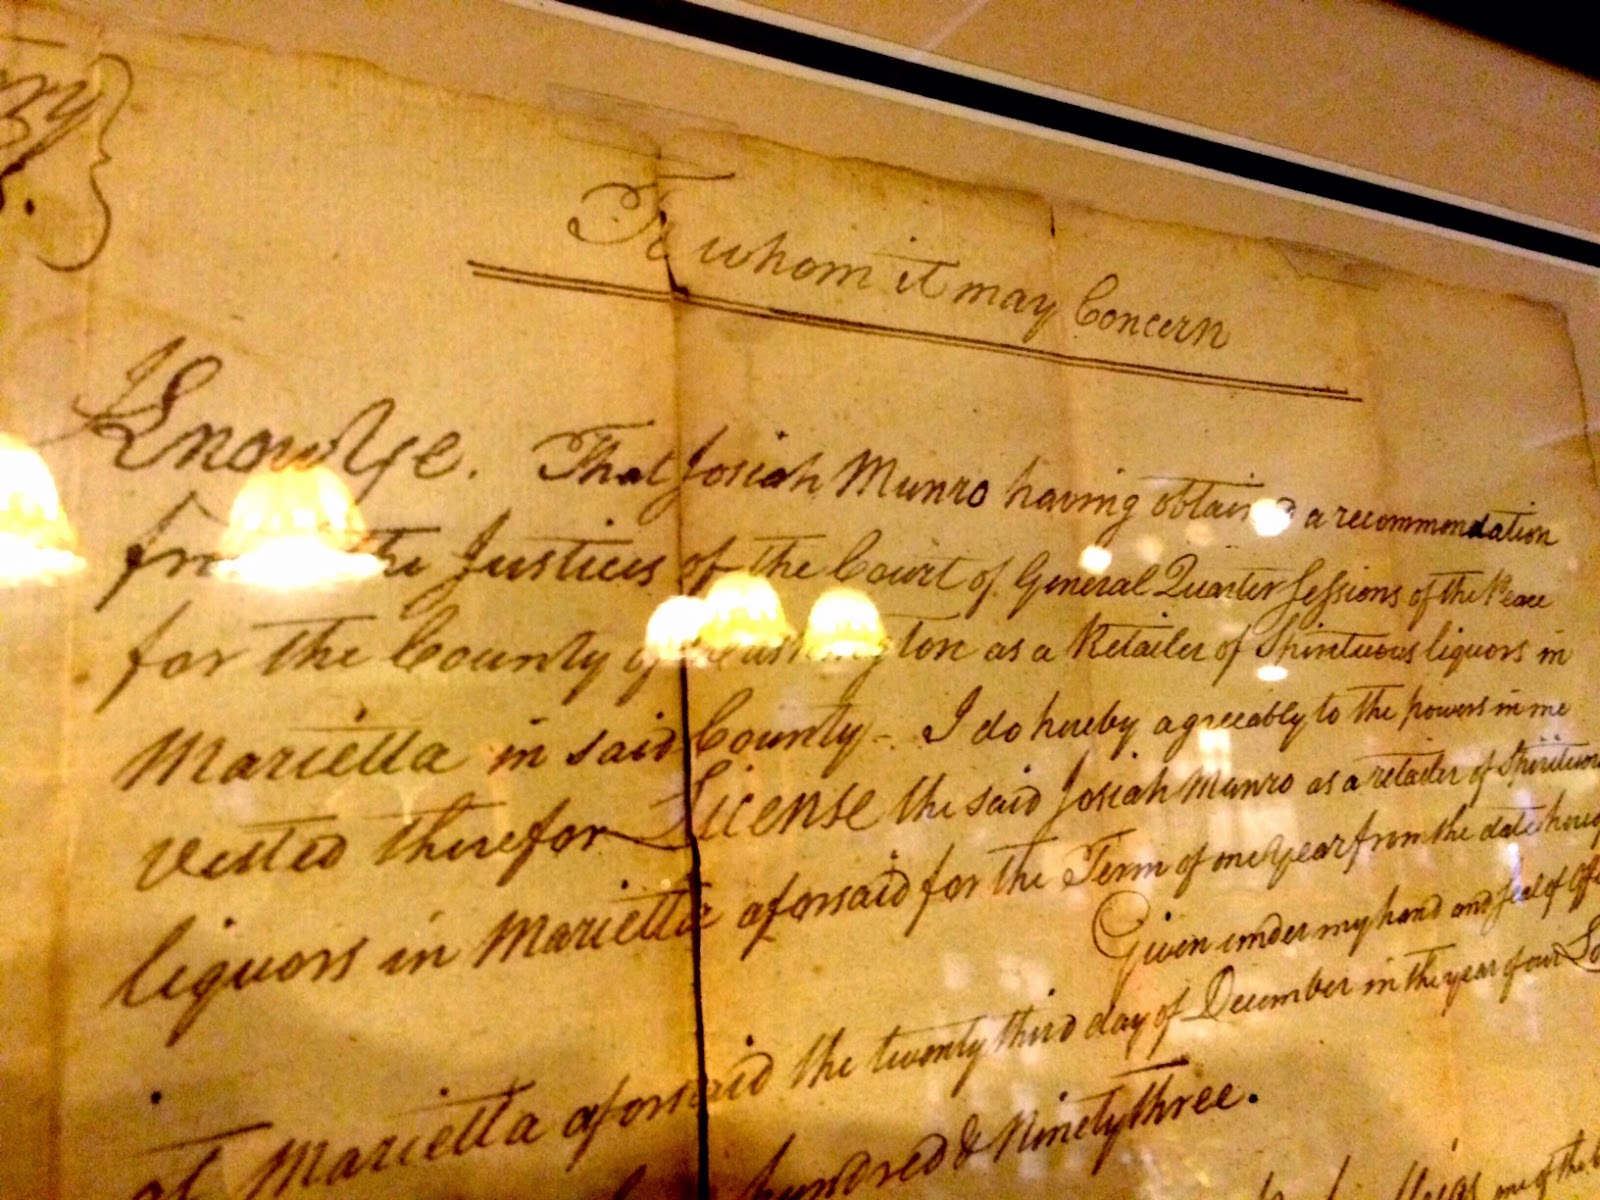 To whom it may Concern
Know Ye. That Josiah Munro having obtained a recommendation
from the Justices of the Court of General Quarter Sessions of the Peace
for the County of Washington as a Retailer of Spirituous liquors in
Marietta in said County - I do hereby agreeably to the powers in me
vested therefor License the said Josiah Munro as a retailer of Spirituous
liquors in Marietta aforsaid for the Term of one year from the date
Given under my hand and seal of
at Marietta aforsaid the twenty third day of December in the year of our
hundred & Ninety three.
one of the